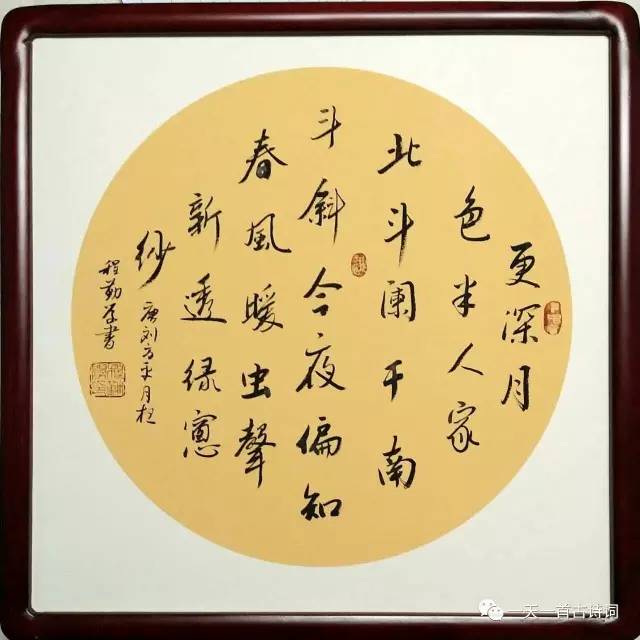 更深月
色半人家
北斗阑干南
斗斜今夜偏知
春風暖虫聲
新透绿窗
纱
唐刘方平月夜
程勤学書
一天一首古诗词